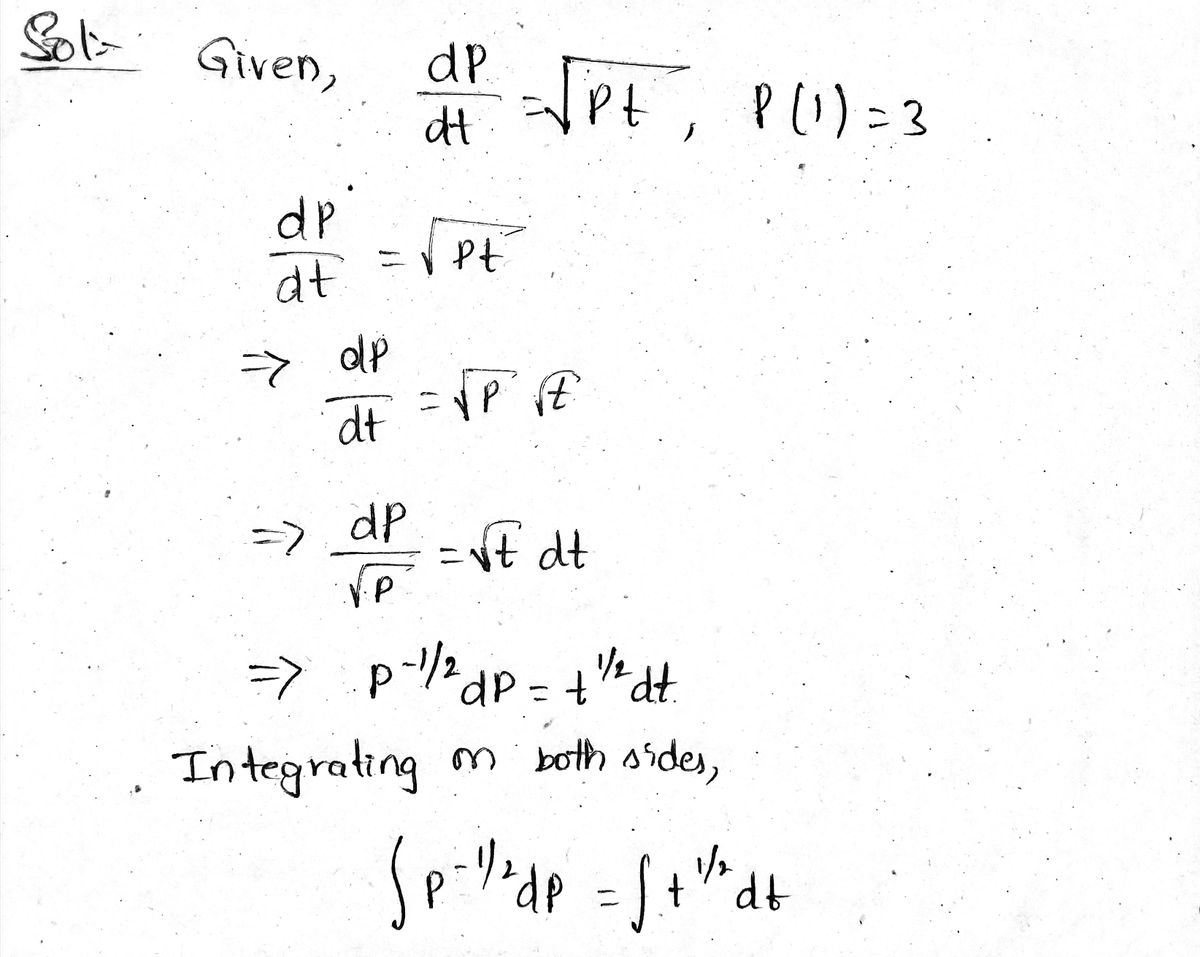 Sol:- Given, dP/dt = √Pt , P(1) = 3
dP/dt = √Pt
=> dP/dt = √P √t
=> dP/√P = √t dt
=> P^-1/2 dP = t^1/2 dt.
Integrating on both sides,
∫ P^-1/2 dP = ∫ t^1/2 dt